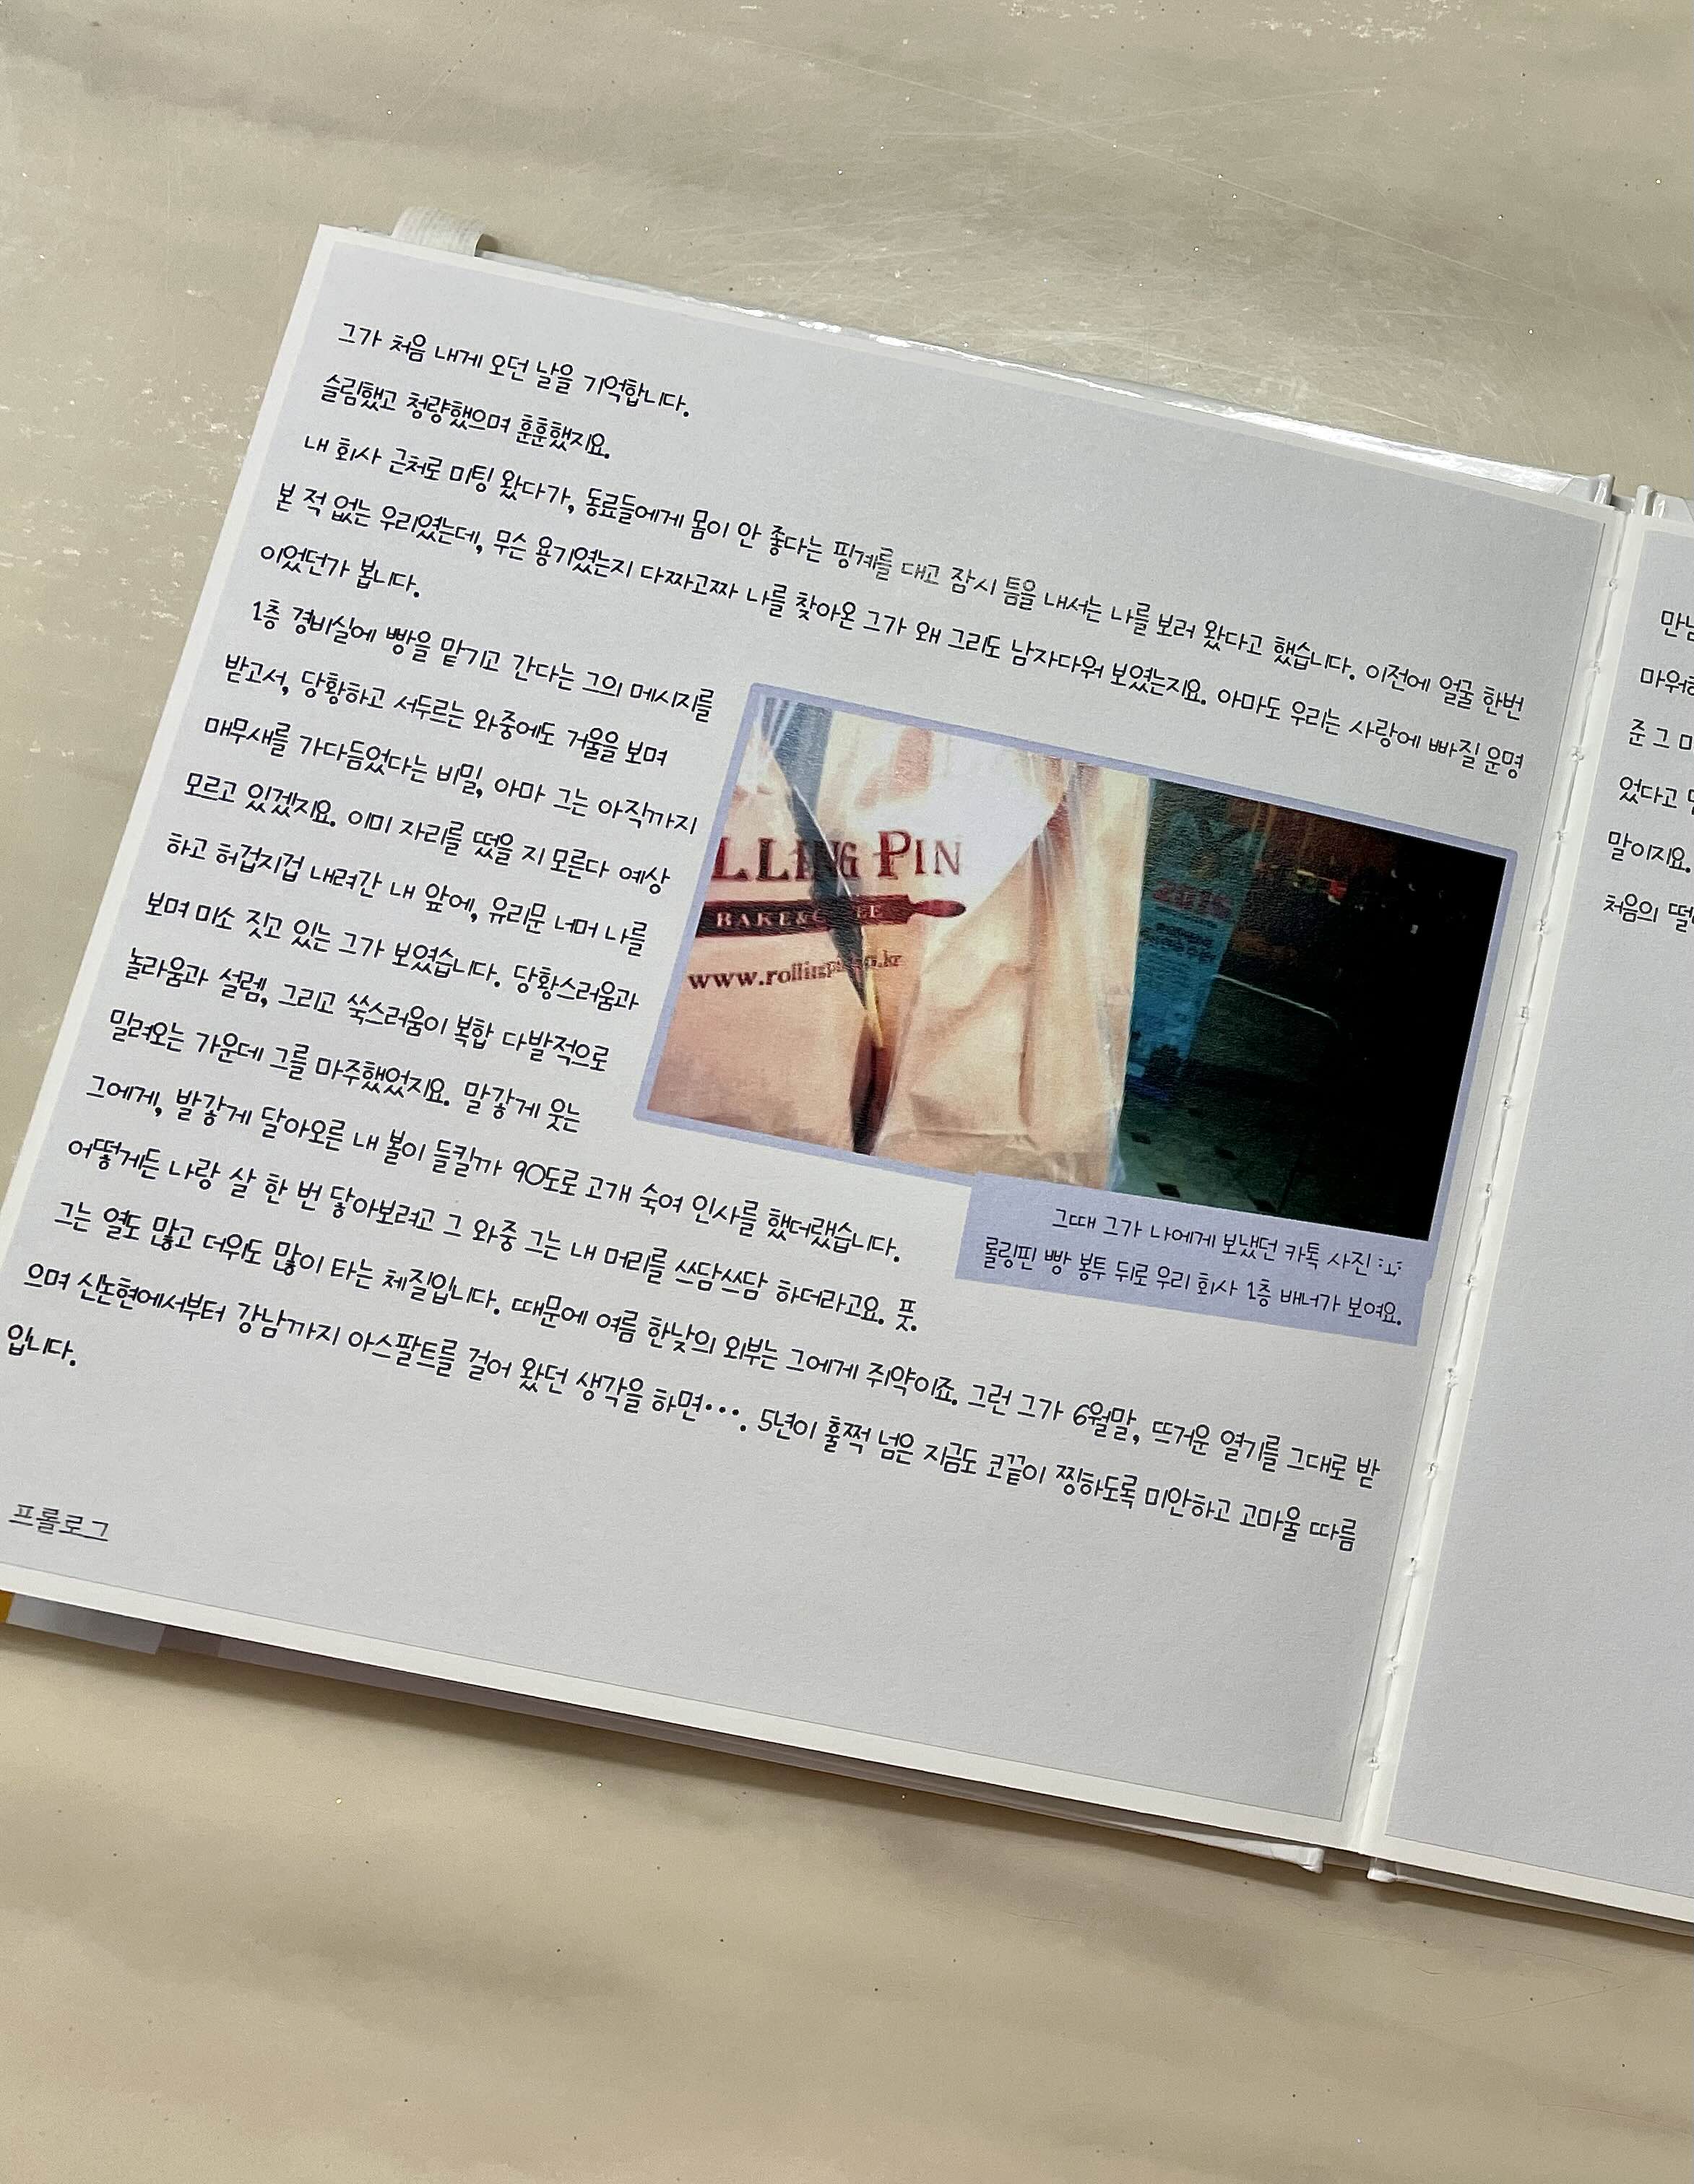 그가 처음 내게 오던 날을 기억합니다.
슬림했고 청량했으며 훈훈했지요.
내 회사 근처로 미팅 왔다가, 동료들에게 몸이 안 좋다는 핑계를 대고 잠시 틈을 내서는 나를 보러 왔다고 했습니다. 이전에 얼굴 한번
본 적 없는 우리였는데, 무슨 용기였는지 다짜고짜 나를 찾아온 그가 왜 그리도 남자다워 보였는지요. 아마도 우리는 사랑에 빠질 운명
이었던가 봅니다.
1층 경비실에 빵을 맡기고 간다는 그의 메시지를
받고서, 당황하고 서두르는 와중에도 거울을 보며
매무새를 가다듬었다는 비밀, 아마 그는 아직까지
모르고 있겠지요. 이미 자리를 떴을 지 모른다 예상
하고 허겁지겁 내려간 내 앞에, 유리문 너머 나를
보며 미소 짓고 있는 그가 보였습니다. 당황스러움과
놀라움과 설렘, 그리고 쑥스러움이 복합 다발적으로
밀려오는 가운데 그를 마주했었지요. 말갛게 웃는
그에게, 발갛게 달아오른 내 볼이 들킬까 90도로 고개 숙여 인사를 했더랬습니다.
어떻게든 나랑 살 한 번 닿아보려고 그 와중 그는 내 머리를 쓰담쓰담 하더라고요. 풋.
그는 열도 많고 더위도 많이 타는 체질입니다. 때문에 여름 한낮의 외부는 그에게 쥐약이죠. 그런 그가 6월말, 뜨거운 열기를 그대로 받
으며 신논현에서부터 강남까지 아스팔트를 걸어 왔던 생각을 하면···. 5년이 훌쩍 넘은 지금도 코끝이 찡하도록 미안하고 고마울 따름
입니다.
LLING PIN
BAKE&
www.rolling
그때 그가 나에게 보냈던 카톡 사진
롤링핀 빵 봉투 뒤로 우리 회사 1층 배너가 보여요.
프롤로그
마워하
준 그
었다고
말이지요.
처음의